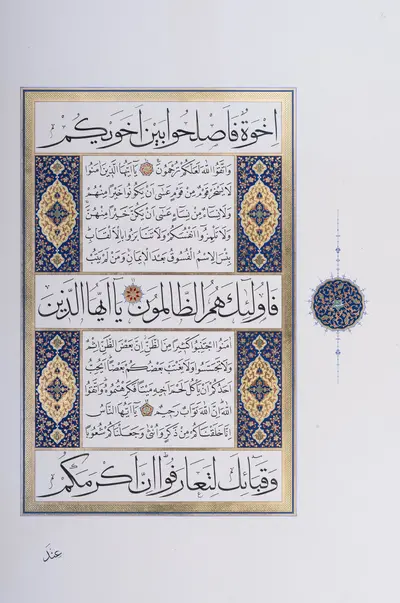 إِخْوَةٌ فَأَصْلِحُوا بَيْنَ أَخَوَيْكُمْ
وَاتَّقُوا اللهَ لَعَلَّكُمْ تُرْحَمُونَ يَا أَيُّهَا الَّذِينَ آمَنُوا
لَا يَسْخَرْ قَوْمٌ مِنْ قَوْمٍ عَسَىٰ أَنْ يَكُونُوا خَيْرًا مِنْهُمْ
وَلَا نِسَاءٌ مِنْ نِسَاءٍ عَسَىٰ أَنْ يَكُنَّ خَيْرًا مِنْهُنَّ
وَلَا تَلْمِزُوا أَنْفُسَكُمْ وَلَا تَنَابَزُوا بِالْأَلْقَابِ
بِئْسَ الِاسْمُ الْفُسُوقُ بَعْدَ الْإِيمَانِ وَمَنْ لَمْ يَتُبْ
فَأُولَٰئِكَ هُمُ الظَّالِمُونَ يَا أَيُّهَا الَّذِينَ
آمَنُوا اجْتَنِبُوا كَثِيرًا مِنَ الظَّنِّ إِنَّ بَعْضَ الظَّنِّ إِثْمٌ
وَلَا تَجَسَّسُوا وَلَا يَغْتَبْ بَعْضُكُمْ بَعْضًا أَيُحِبُّ
أَحَدُكُمْ أَنْ يَأْكُلَ لَحْمَ أَخِيهِ مَيْتًا فَكَرِهْتُمُوهُ وَاتَّقُوا
اللهَ إِنَّ اللهَ تَوَّابٌ رَحِيمٌ يَا أَيُّهَا النَّاسُ
إِنَّا خَلَقْنَاكُمْ مِنْ ذَكَرٍ وَأُنْثَىٰ وَجَعَلْنَاكُمْ شُعُوبًا
وَقَبَائِلَ لِتَعَارَفُوا إِنَّ أَكْرَمَكُمْ
عِنْدَ